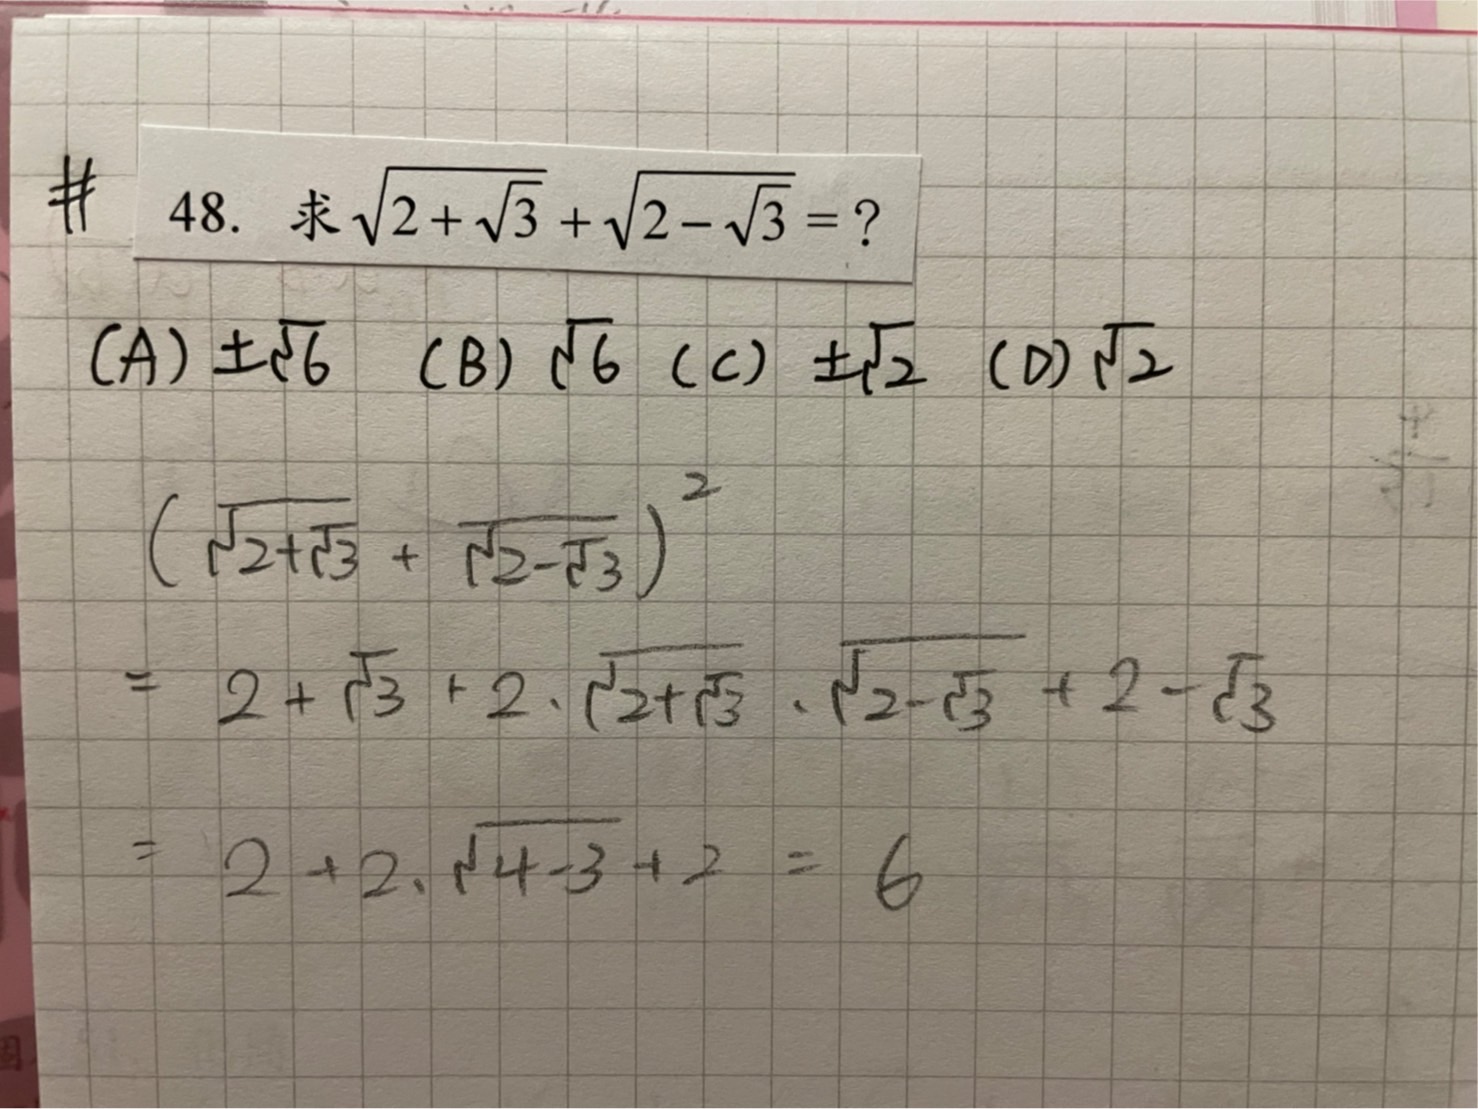 # 48. 求 √(2+√3) + √(2−√3) = ?
(A) ±√6 (B) √6 (C) ±√2 (D) √2
(√(2+√3) + √(2-√3))²
= 2 + √3 + 2 · √(2+√3) · √(2-√3) + 2 - √3
= 2 + 2 · √(4-3) + 2 = 6